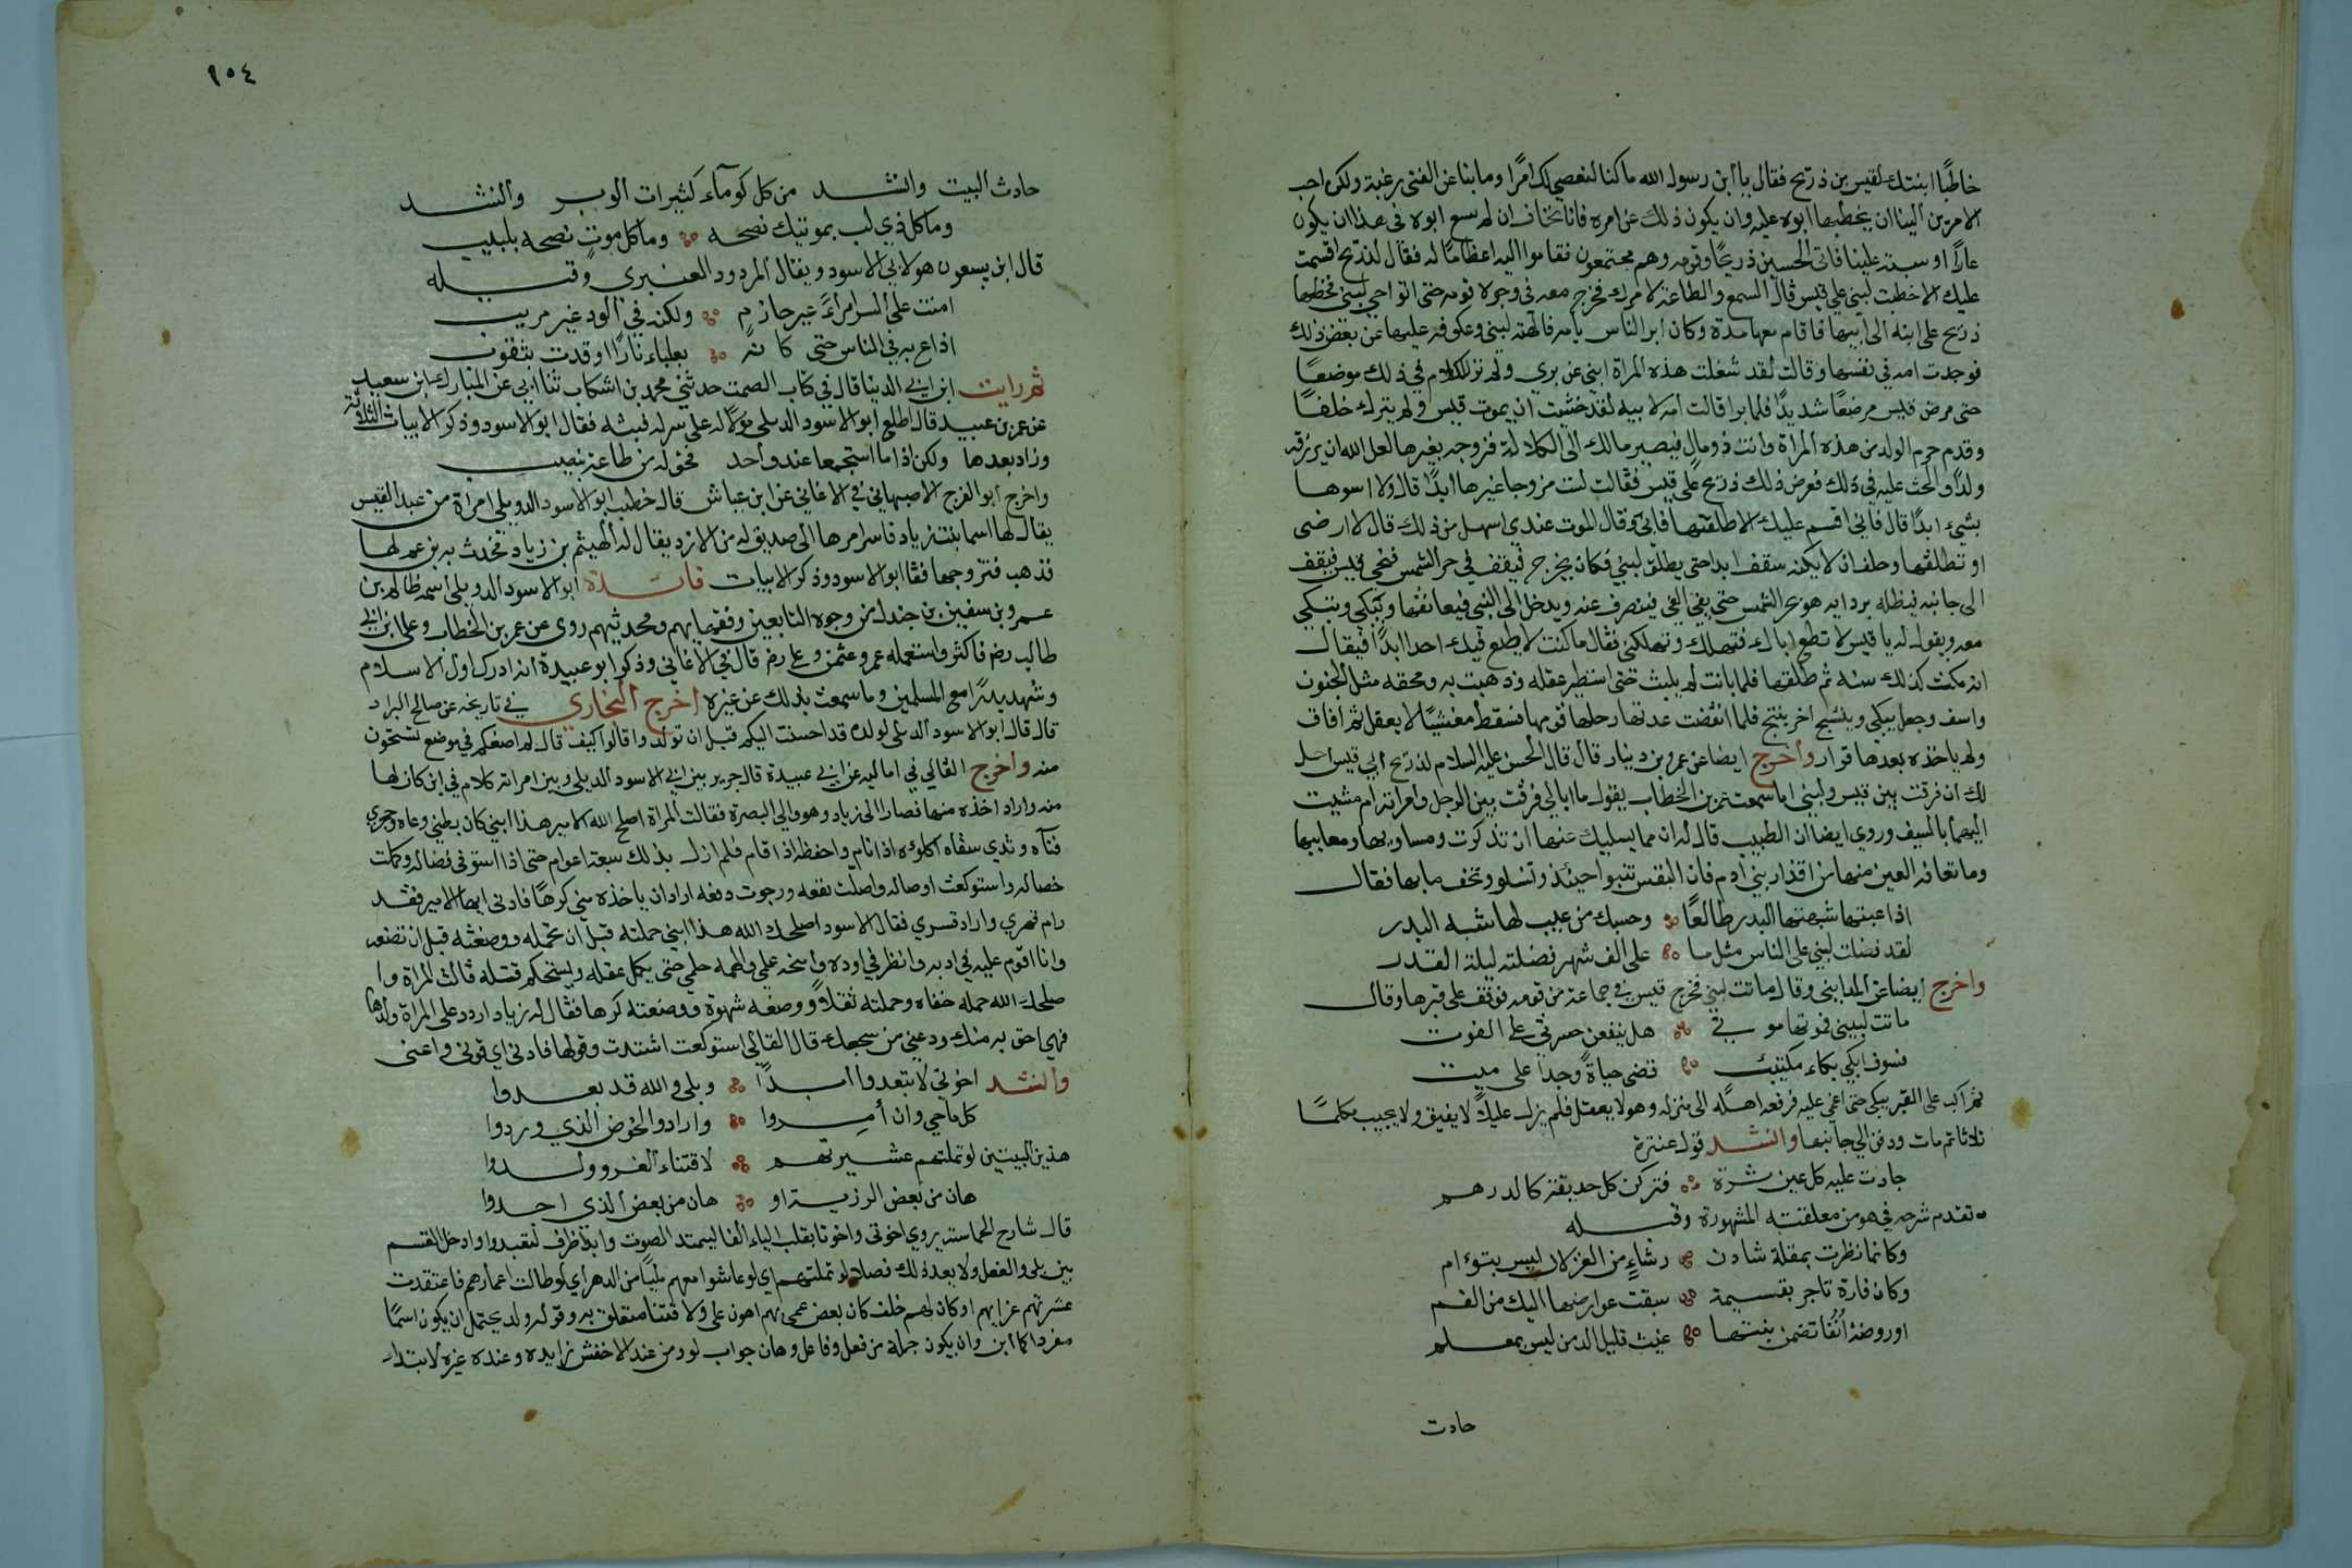 خاطبًا ابنتك لقيس بن ذريح فقال يا ابن رسول الله ماكنا لنعصي لك امرًا وما بنا عن الفتى رغبة ولكن احب
الامرين الينا ان يخطبها ابوه عليه وان يكون ذلك عن امره فانا نخاف ان لم يسع ابوه في هذا ان يكون
عارًا او سبة علينا فاتى الحسين ذريحًا وقومه وهم مجتمعون فقاموا اليه اعظامًا له فقال لذريح اقسمت
عليك الا خطبت لبنى على قيس قال السمع والطاعة لامرك فخرج معه في وجوه قومه حتى اتوا حي لبنى فخطبها
ذريح على ابنه الى ابيها فاقام معها مدة وكان ابر الناس بامه فالهته لبنى وعكوفه عليها عن بعض ذلك
فوجدت امه في نفسها وقالت لقد شغلت هذه المراة ابني عن بري ولم تر للكلام في ذلك موضعًا
حتى مرض قيس مرضًا شديدًا فلما برا قالت امه لابيه لقد خشيت ان يموت قيس ولم يترك خلفًا
وقدم حرم الولد من هذه المراة وانت ذو مال فيصير مالك الى الكلالة فزوجه بغيرها لعل الله ان يرزقه
ولدًا والحث عليه في ذلك فعرض ذلك ذريح على قيس فقالت لست متزوجا غيرها ابدًا قال ولا اسوها
بشيء ابدًا قال فاني اقسم عليك الا طلقتها فابى وقال الموت عندي اسهل من ذلك قال لا ارضى
او تطلقها وحلف ان لا يكنه سقف ابدا حتى يطلق لبنى فكان يخرج فيقف في حر الشمس فيجي قيس فيقف
الى جانبه فيظله بردايه هو بحر الشمس حتى يفي الفي فينصرف عنه ويدخل الى لبنى فيعانقها ويبكي وتبكي
معه ويقول له يا قيس لا تطع اباك فتهلك وتهلكني فقال ما كنت لاطيع فيك احدا ابدًا فيقال
انه مكث كذلك سنه ثم طلقها فلما بانت لم يلبث حتى استطير عقله وذهبت به ولحقه مثل الجنون
واسف وجعل يبكي وينشج احر ينتج فلما انقضت عدتها رحلها قومها فسقط مغشيًا لا يعقل ثم افاق
ولم ياخذه بعدها قرار واخرج ايضا عن عمرو بن دينار قال قال الحسن عليه السلام لذريح ابي قيس احل
لك ان فرقت بين قيس ولبنى اما سمعت عمر بن الخطاب يقول ما ابالي فرقت بين الرجل وامراته ام مشيت
اليهما بالسيف وروي ايضا ان الطبيب قال له ان مما يسليك عنها ان تذكرت ومساويها ومعايبها
وما تعافه العين منها من اقذار بني ادم فان النفس تنبوا حينئذ وتسلو وتخف ما بها فقال
اذا عبتها شبهتها البدر طالعًا وحسبك من عيب لها شبه البدر
لقد فضلت لبنى على الناس مثل ما على الف شهر فضلته ليلة القدر
واخرج ايضا عن المدايني وقال ماتت لبنى فخرج قيس في جماعة من قومه فوقف على قبرها وقال
ماتت لبيني فموتها موتي هل ينفعن حسرتي على الفوت
فسوف ابكي بكاء مكتئب قضى حياةً وجدا على ميت
ثم اكب على القبر يبكي حتى اغمي عليه فرفعه اهله الى منزله وهو لا يعقل فلم يزل عليلًا لا يفيق ولا يجيب مكلمًا
ثلاثا ثم مات ودفن الى جانبها وانشد قول عنترة
جادت عليه كل عين ثرة فتركن كل حديقة كالدرهم
تقدم شرحه في هو من معلقته المشهورة وقبله
وكانما نظرت بمقلة شادن رشاءٍ من الغزلان ليس بتوءام
وكان فارة تاجر بقسيمة سبقت عوارضها اليك من الفم
او روضة أُنُفًا تضمن نبتها غيث قليل الدمن ليس بمعلم
حادت
٩٥٤
حادث البيت وانشد من كل كوماء كثيرات الوبر وانشد
وما كل ذي لب بموتيك نصحه وما كل موتٍ نصحه بلبيب
قال ابن يسعون هو لابي الاسود ويقال المردود العنبري وقبله
امنت على السر امراءً غير حازمٍ ولكنه في الود غير مريب
اذاع به في الناس حتى كانه بعلياء نارًا اوقدت بثقوب
ثم رايت ابن ابي الدنيا قال في كتاب الصمت حدثني محمد بن اشكاب ثنا ابي عن المبارك ابن سعيد
عن عمر بن عبيد قال اطلع ابو الاسود الدبلي مولاً له على سر له فبثه فقال ابو الاسود وذكر الابيات الثلاثة
وزاد بعدها ولكن اذا ما استجمعا عند واحد فحق له من طاعة بنصيب
واخرج ابو الفرج الاصبهاني في الاغاني عن ابن عباش قال خطب ابو الاسود الدويلي امراة من عبد القيس
يقال لها اسما بنت زياد فاسر امرها الى صديق له من الازد يقال له الهيثم بن زياد فحدث به بن عم لها
فذهب فتزوجها فقا ابو الاسود وذكر الابيات فائدة ابو الاسود الدويلي اسمه ظالم بن
عمرو بن سفين بن جندل من وجوه التابعين وفقهايهم ومحدثيهم روى عن عمر بن الخطاب وعلي ابن ابي
طالب رض فاكثر واستعمله عمر وعثمن وعلي رض قال في الاغاني وذكر ابو عبيدة انه ادرك اول الاسلام
وشهد بدرًا مع المسلمين وما سمعت بذلك عن غيره اخرج البخاري في تاريخه عن صالح البراد
قال قال ابو الاسود الدئلي لولده قد احسنت اليكم قبل ان تولدوا قالوا كيف قال لم اضعكم في موضع تستحون
منه واخرج القالي في اماليه عن ابي عبيدة قال جرير بين ابي الاسود الديلي وبين امراته كلام في ابن كان لها
منه واراد اخذه منها فصارا الى زياد وهو والي البصرة فقالت المراة اصلح الله الامير هذا ابني كان بطني وعاه وحجري
فنآه وثدي سقاه اكلوه اذا نام واحفظه اذا قام فلم ازل بذلك سبعة اعوام حتى اذا استوفى فصاله وكملت
خصاله واستوكعت اوصاله واملت نفعه ورجوت دفعه اراد ان ياخذه مني كرهًا فادني ايها الامير فقد
رام قهري واراد قسري فقال الاسود اصلحك الله هذا ابني حملته قبل ان تحمله ووضعته قبل ان تضعه
وانا اقوم عليه في ادبه وانظر في اوده وامنحه علمي والهمه حلمي حتى يكمل عقله ويستحكم فتله قالت المراة وا
صلحك الله حمله خفاه وحملته ثقلاً ووضعه شهوة ووضعته كرها فقال له زياد اردد على المراة ولدها
فهي احق به منك ودعني من سجعك قال القالي استوكعت اشتدت وقولها فادني اي قوني واعني
وانشد اخوتي لا تبعدوا ابدًا وبلى والله قد بعدوا
كل ما حي وان أمِروا واردو الحوض الذي وردوا
هذين البيتين لو تملتهم عشيرتهم لاقتناء الغر وولدوا
هان من بعض الرزية او هان من بعض الذي اجدوا
قال شارح الحماسة يروي اخوتي واخوتا بقلب الياء الفا ليمتد الصوت وابدا ظرف لتبعدوا وادخل القسم
بين بلى والفعل ولا بعد ذلك فصلا لو تملتهم اي لو عاشوا معهم مليًا من الدهر اي لو طالت اعمارهم فاعتقدت
عشرتهم عزا بهم او كان لهم خلف كان بعض غمي بهم اهون علي ولاقتنا متعلق به وقوله ولد يحتمل ان يكون اسمًا
مفردا كما ابن وان يكون جملة من فعل وفاعل وهان جواب لو ومن عند الاخفش زايده وعنده غيره لابتداء